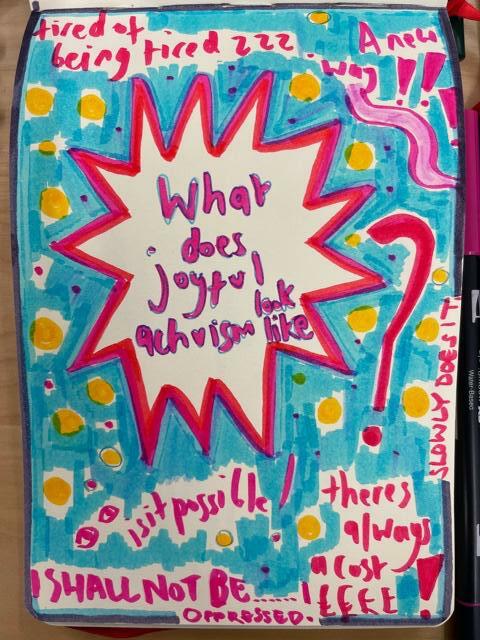 tired of
being tired zzz
A new
way!!!
What
does
joyful
look
activism like
?
SLOWLY DOES IT!
is it possible!
theres
always
a cost
!££££!
I SHALL NOT BE......
OPPRESSED.
Water-Based